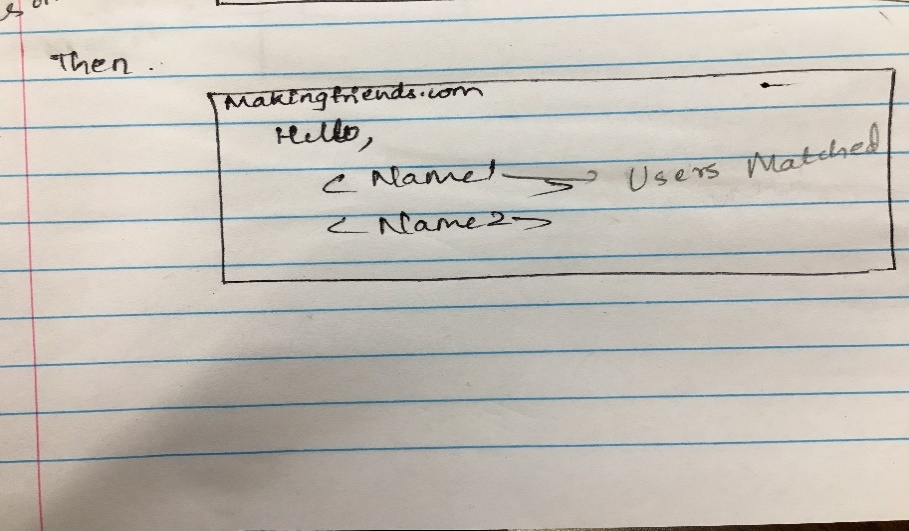 Then.
Makingfriends.com
Hello,
<Name1> → Users Matched
<Name2>